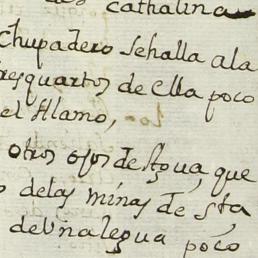 cathalina
Chupadero sehalla ala
tresquartos de ella poco
el Alamo,
otros ojos de Agua, que
o delas minas de Sta
de Vna legua poco